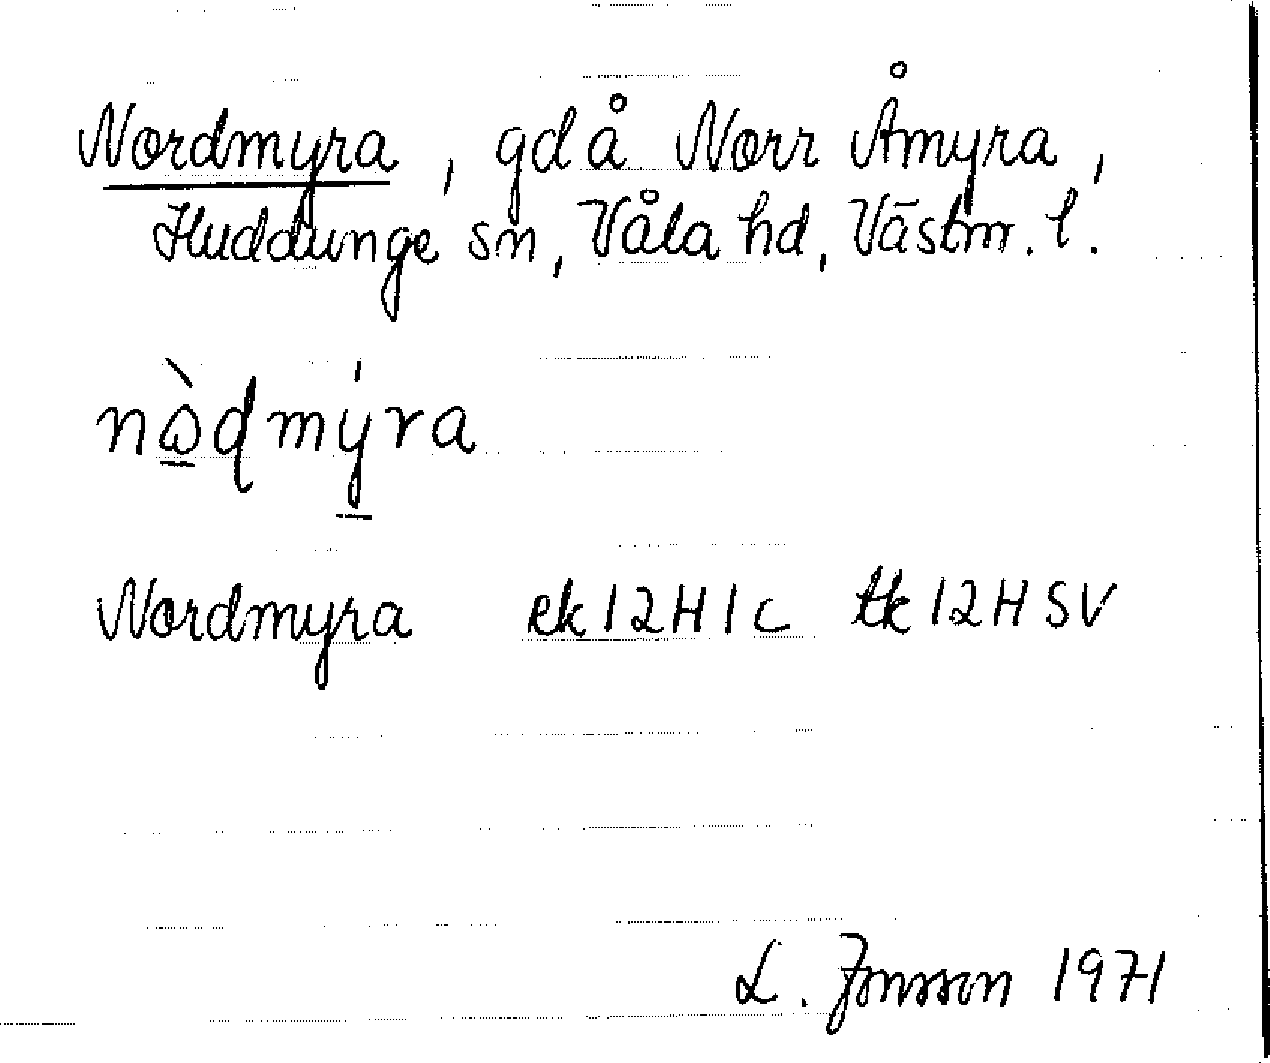 Nordmyra, gd å Norr Åmyra,
Huddunge sn, Våla hd, Västm. l.
nò̱ḍmý̱ra
Nordmyra ek 12H1c tk 12H SV
L. Jonsson 1971